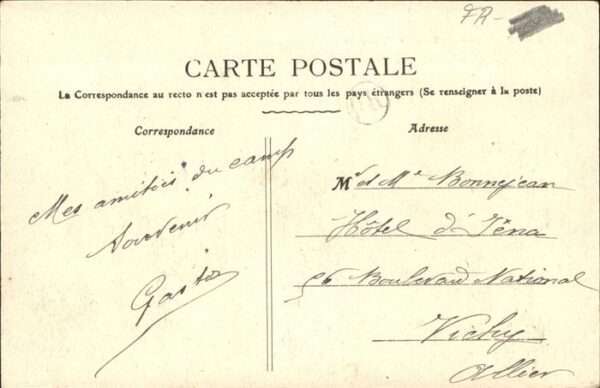 FR-
CARTE POSTALE
La Correspondance au recto n'est pas acceptée par tous les pays étrangers (Se renseigner à la poste)
Correspondance
Mes amitiés du camp
Souvenir
Gaston
Adresse
Mr et Me Bonnejean
Hôtel d'Iéna
56 Boulevard National
Vichy
Allier